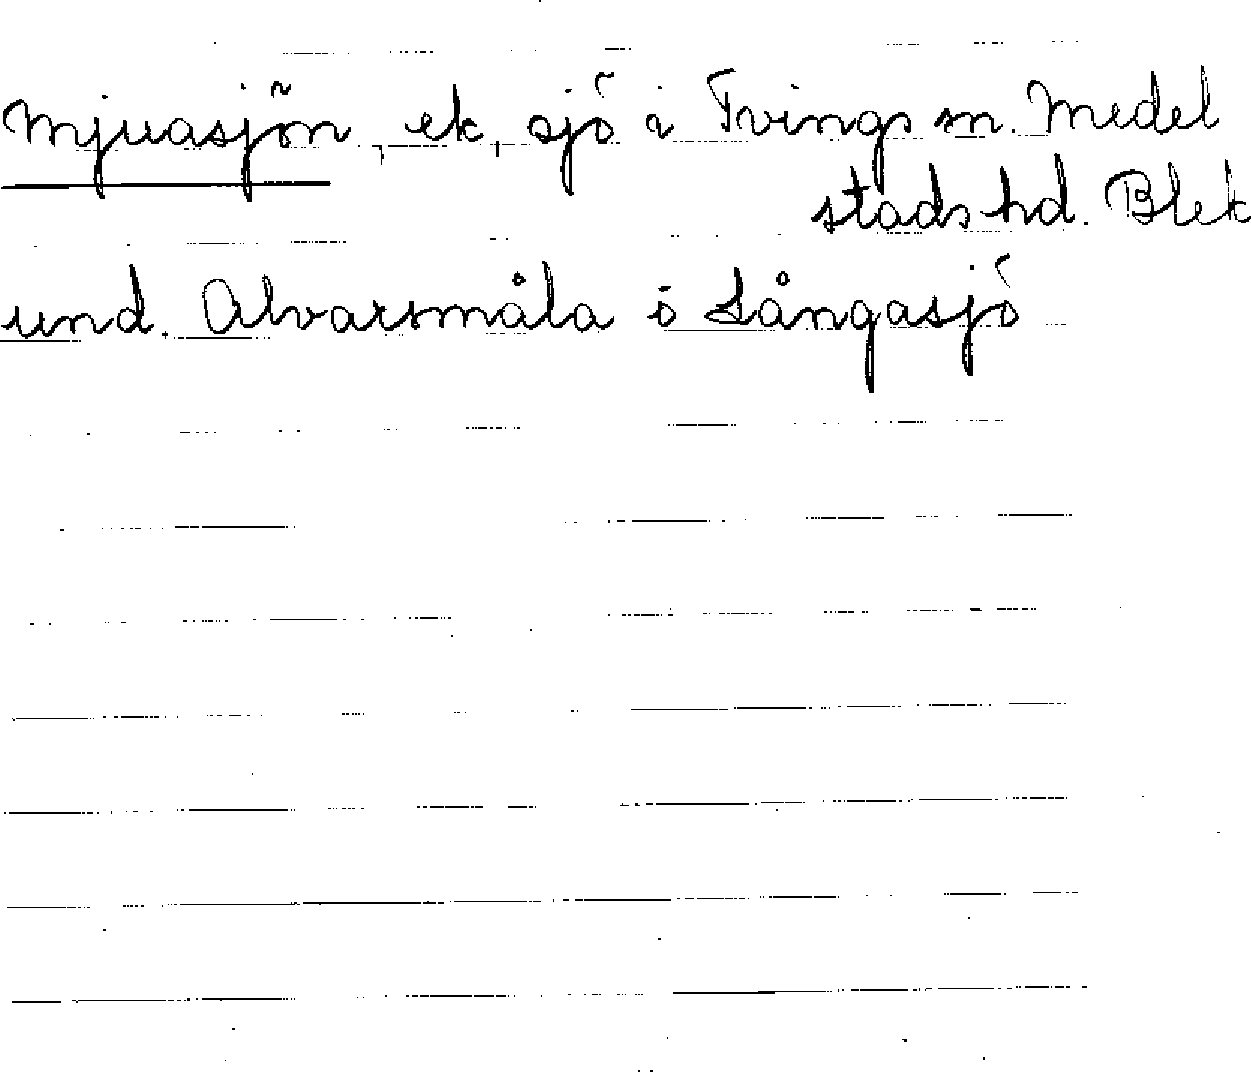 Mjuasjön, ek, sjö i Tvings sn. Medel
stads hd. Blek
und. Alvarsmåla o Långasjö